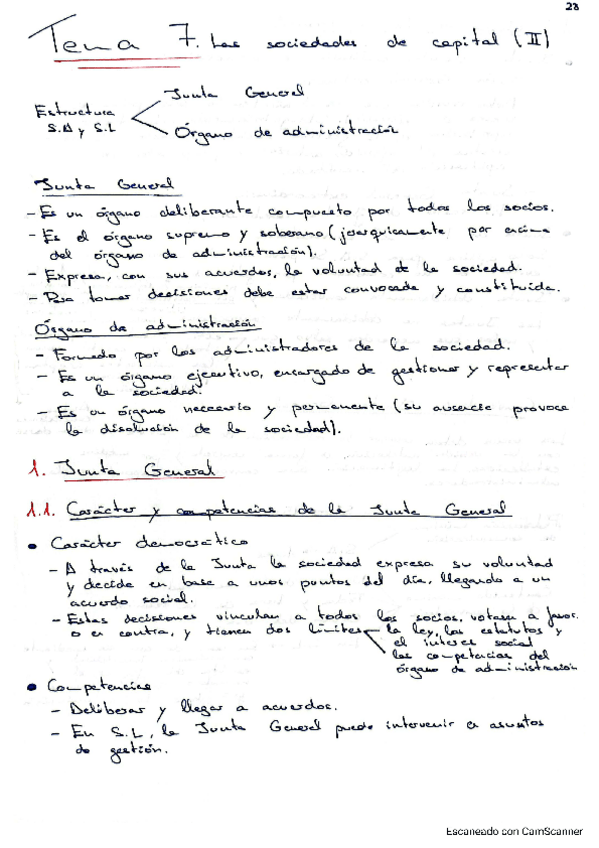 28
Tema 7. Las sociedades de capital (II)
Estructura
S.A y S.L
Junta General
Órgano de administración
Junta General
- Es un órgano deliberante compuesto por todos los socios.
- Es el órgano supremo y soberano (jerarquicamente por encima
del órgano de administración).
- Expresa, con sus acuerdos, la voluntad de la sociedad.
- Para tomar decisiones debe estar convocada y constituida.
Órgano de administración
- Formado por los administradores de la sociedad.
- Es un órgano ejecutivo, encargado de gestionar y representar
a la sociedad.
- Es un órgano necesario y permanente (su ausencia provoca
la disolución de la sociedad).
1. Junta General
1.1. Carácter y competencias de la Junta General
• Carácter democrático
- A través de la Junta la sociedad expresa su voluntad
y decide en base a unos puntos del día, llegando a un
acuerdo social.
- Estas decisiones vinculan a todos los socios, votasen a favor
o en contra, y tienen dos límites
la ley, los estatutos y
el interés social
las competencias del
órgano de administración
• Competencias
- Deliberar y llegar a acuerdos.
- En S.L, la Junta General puede intervenir en asuntos
de gestión.
Escaneado con CamScanner